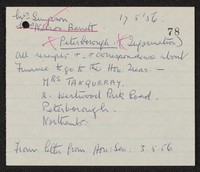 Mrs Simpson 17.5.56.
78
Miss Barrett
Peterborough (Separation)
all receipts + correspondence about
finance to go to the Hon. Treas. —
MRS TANQUERAY.
2. Westwood Park Road.
Peterborough.
Northants.
From letter from Hon: Sec. 3.5.56